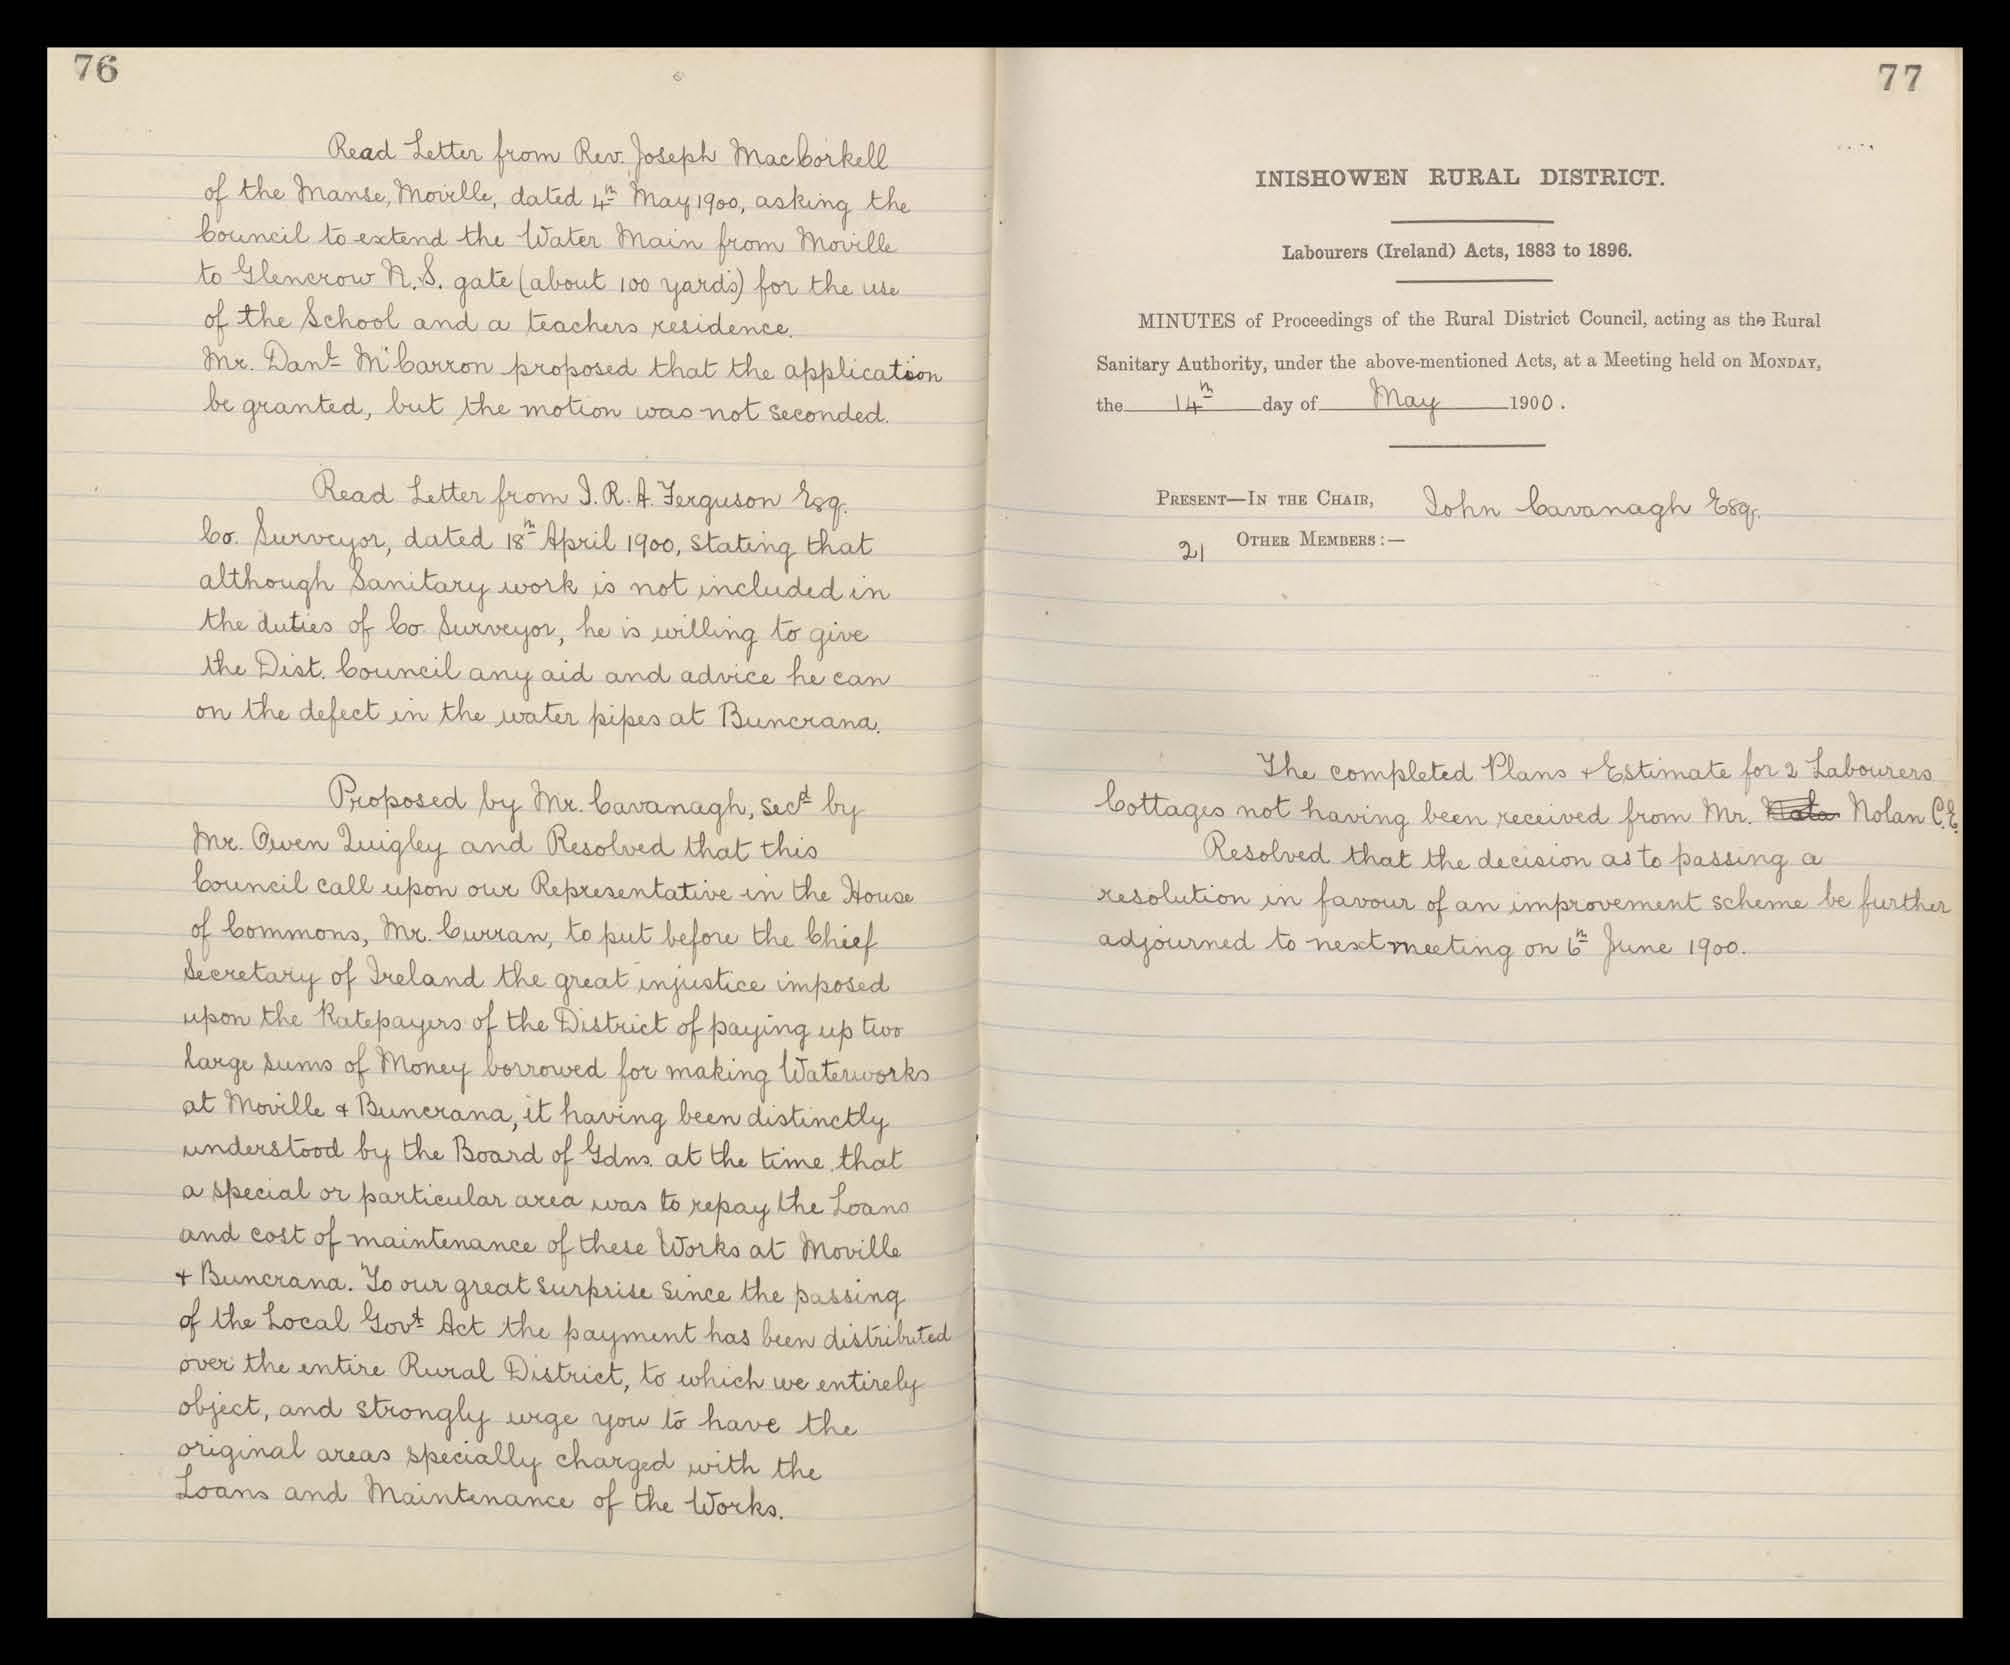 76
Read Letter from Rev. Joseph MacCorkell
of the Manse, Moville, dated 4th May 1900, asking the
Council to extend the Water Main from Moville
to Glencrow N.S. gate (about 100 yards) for the use
of the School and a teachers residence.
Mr. Danl McCarron proposed that the application
be granted, but the motion was not seconded.
Read Letter from J. R. A. Ferguson Esq.
Co. Surveyor, dated 18th April 1900, stating that
although Sanitary work is not included in
the duties of Co. Surveyor, he is willing to give
the Dist. Council any aid and advice he can
on the defect in the water pipes at Buncrana.
Proposed by Mr. Cavanagh, Secd by
Mr. Owen Quigley and Resolved that this
Council call upon our Representative in the House
of Commons, Mr. Curran, to put before the Chief
Secretary of Ireland the great injustice imposed
upon the Ratepayers of the District of paying up two
large sums of Money borrowed for making Waterworks
at Moville & Buncrana, it having been distinctly
understood by the Board of Gdns. at the time that
a special or particular area was to repay the Loans
and cost of maintenance of these Works at Moville
& Buncrana. "To our great surprise since the passing
of the Local Govt Act the payment has been distributed
over the entire Rural District, to which we entirely
object, and strongly urge you to have the
original areas specially charged with the
Loans and Maintenance of the Works.
77
INISHOWEN RURAL DISTRICT.
Labourers (Ireland) Acts, 1883 to 1896.
MINUTES of Proceedings of the Rural District Council, acting as the Rural
Sanitary Authority, under the above-mentioned Acts, at a Meeting held on MONDAY,
the 14th day of May 1900.
PRESENT—IN THE CHAIR, John Cavanagh Esq.
21 OTHER MEMBERS:—
The completed Plans & Estimate for 2 Labourers
Cottages not having been received from Mr. Nolan C.E.
Resolved that the decision as to passing a
resolution in favour of an improvement scheme be further
adjourned to next meeting on 6th June 1900.